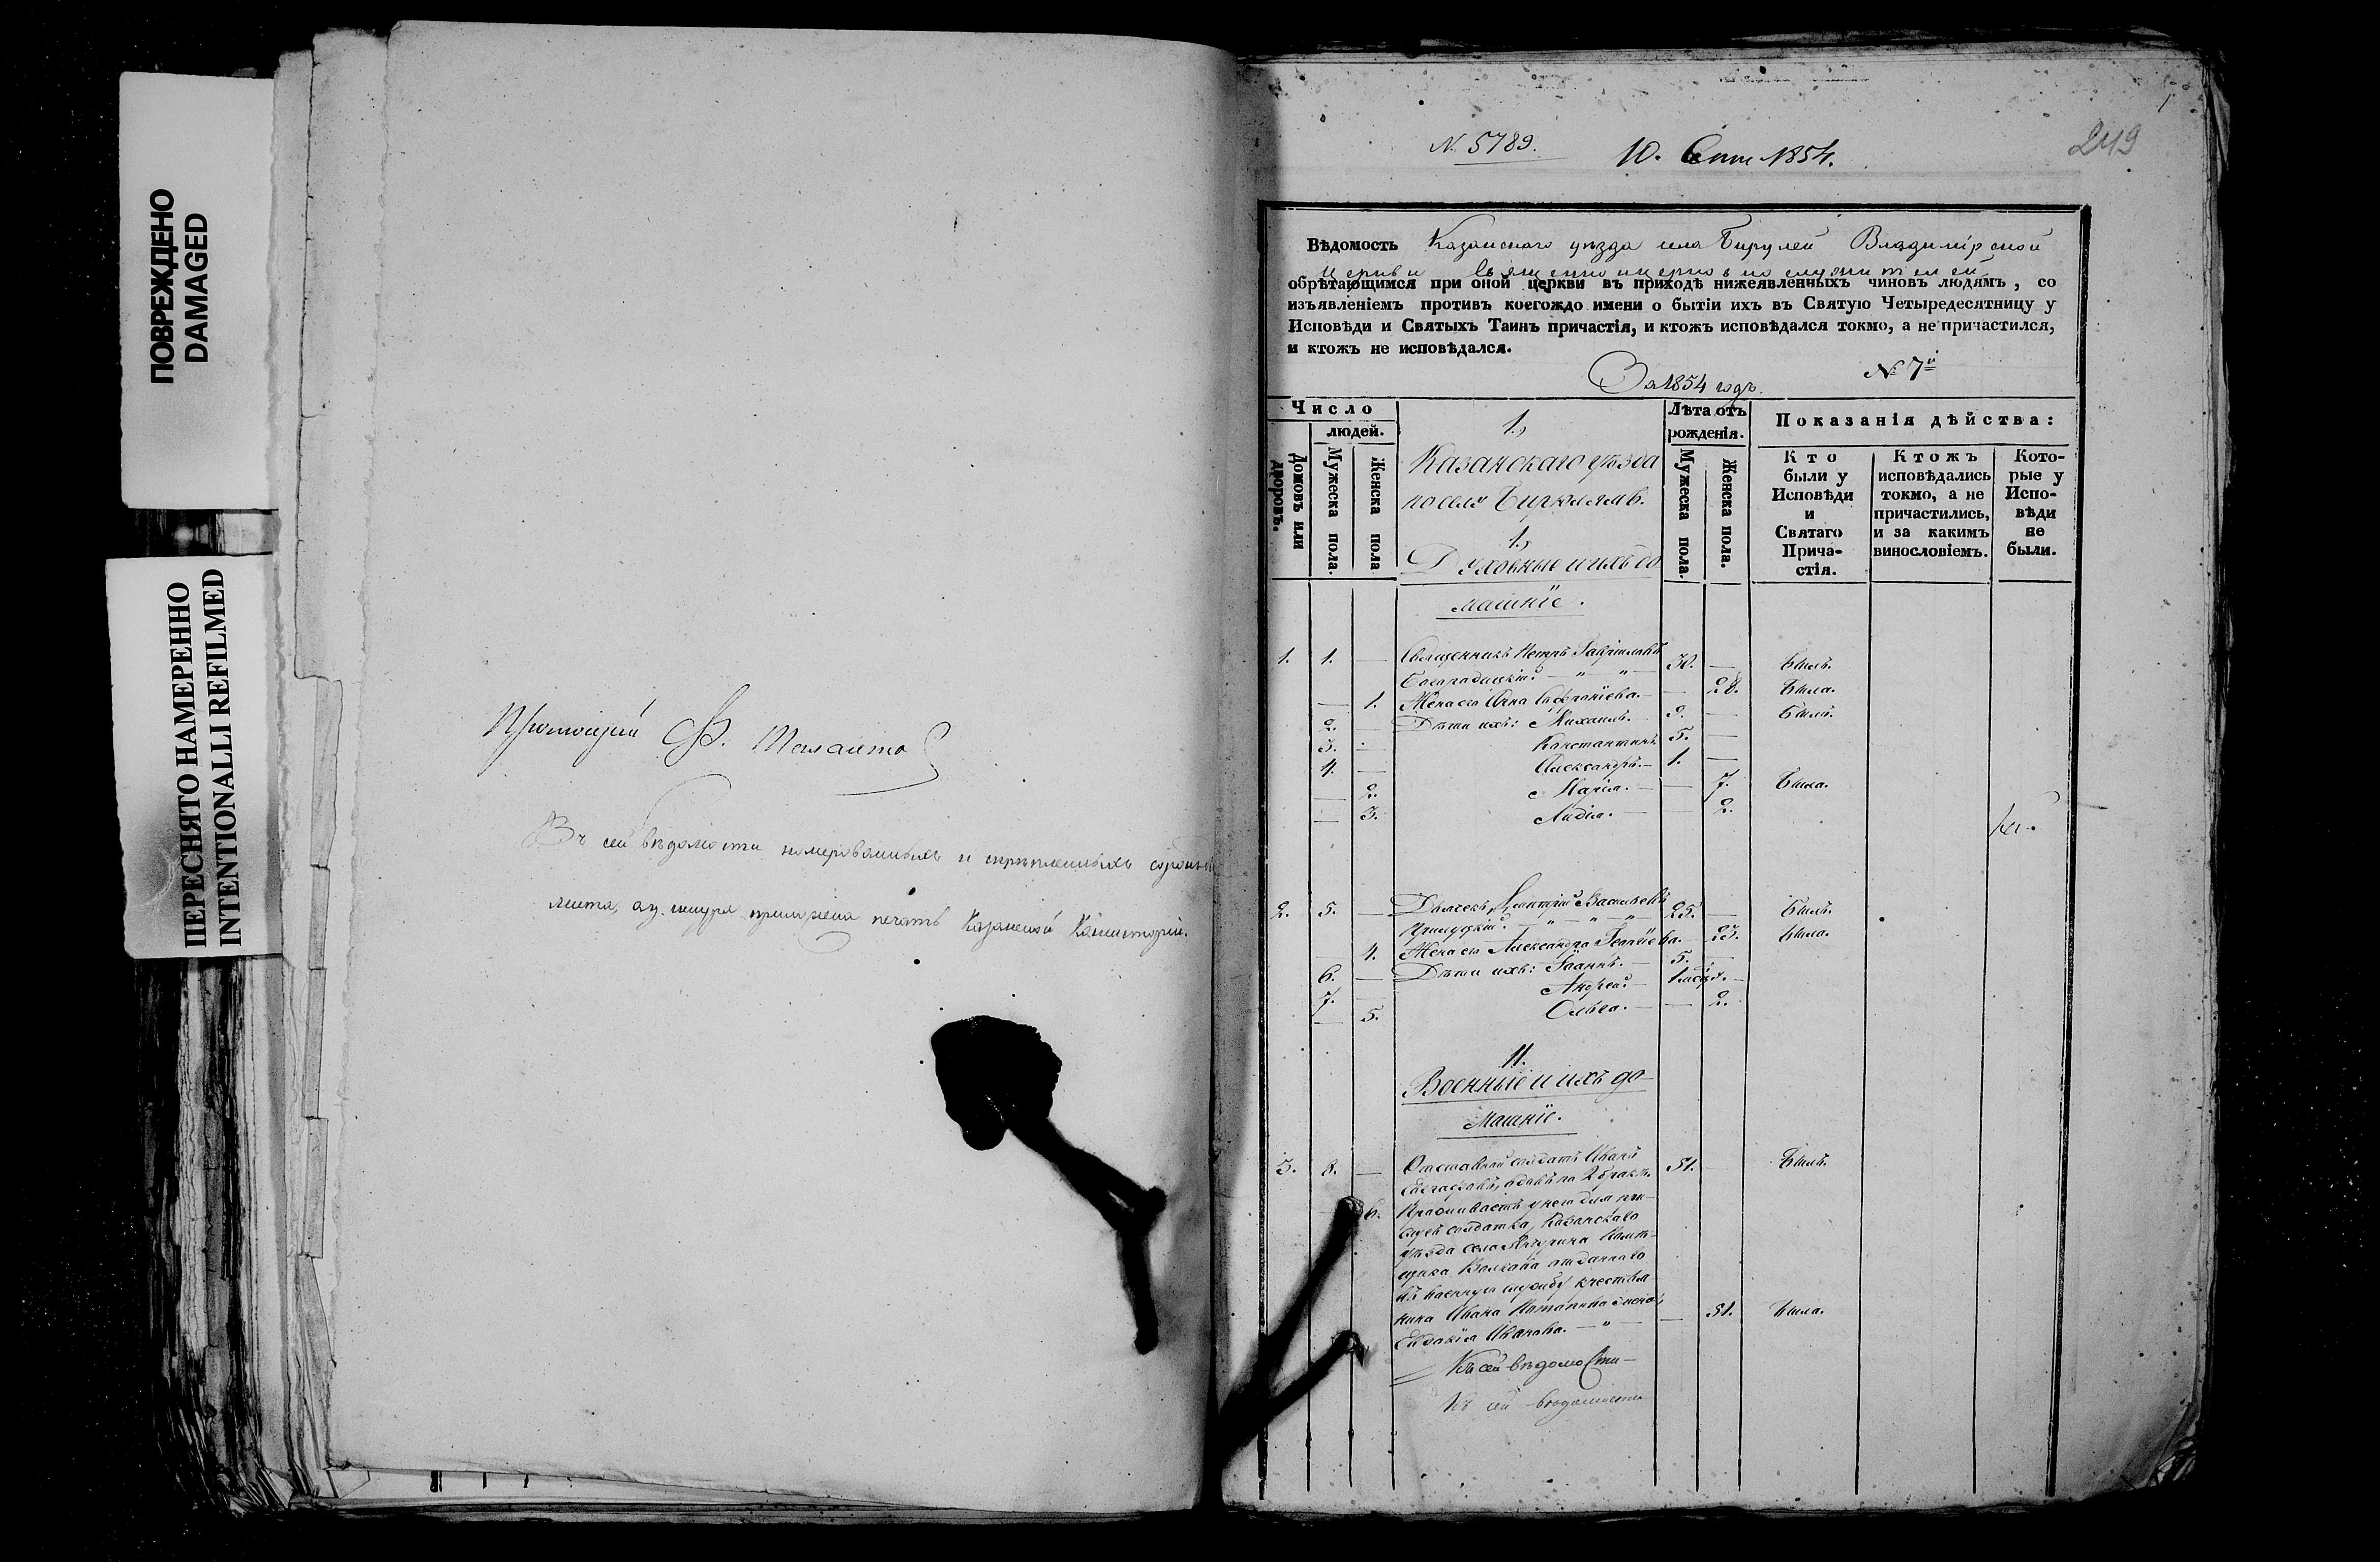 ПОВРЕЖДЕНО
DAMAGED
ПЕРЕСНЯТО НАМЕРЕННО
INTENTIONALLI REFILMED
Въ сей вѣдомости
листа, приложена печать Казанской Консисторіи.
249
№ 5789.
10. 1854.
Вѣдомость Казанскаго уѣзда села Бирулей Владимірской
церкви священноцерковнослужителей
обрѣтающимся при оной церкви въ приходѣ нижеявленныхъ чиновъ людямъ, со
изъявленіемъ противъ коегождо имени о бытіи ихъ въ Святую Четыредесятницу у
Исповѣди и Святыхъ Таинъ причастія, и ктожъ исповѣдался токмо, а не причастился,
и ктожъ не исповѣдался.
За 1854 годъ.
№ 7й
Число
людей.
Домовъ или
дворовъ.
Мужеска пола.
Женска пола
1.,
Казанскаго уѣзда
по селу Бирюлямъ.
1.,
Духовные и ихъ до
машніе.
Лѣта отъ
рожденія.
Мужеска пола.
Женска пола.
Показанія дѣйства:
Кто
были у
Исповѣди
и
Святаго
Прича-
стія.
Ктожъ
исповѣдались
токмо, а не
причастились,
и за какимъ
винословіемъ.
Кото-
рые у
Испо-
вѣди
не
были.
1. 1. — Священникъ Петръ Гавріиловъ
Богородицкій. 30. — Былъ.
— 1. Жена его Анна — 28. Была.
2. — Дѣти ихъ: Михаилъ. 9. — Былъ.
3. — Константинъ. 5. —
4. — Александръ. — 1. —
— 2. Марія. — — 7. Была.
— 3. Лидія. — 2.
2. 5. — Дьячекъ Димитрій Васильевъ 25. — Былъ.
— 4. Жена его Александра Георгіева. — 23. Была.
6. — Дѣти ихъ: Іоаннъ. — 5. —
7. — Андрей. —
— 5. Ольга. — — 2.
II.
Военные и ихъ до-
машніе.
3. 8. — Отставной солдатъ Иванъ
Евграфовъ, вдовъ по 2 бракѣ. 51. Былъ.
6.
солдатка, Казанскаго
уѣзда села помѣ-
щика Волкова отданнаго
въ военную службу крестья-
нина Ивана жена,
Евдокія Иванова. — — 51. Была.
Къ сей вѣдомости
Къ сей вѣдомости